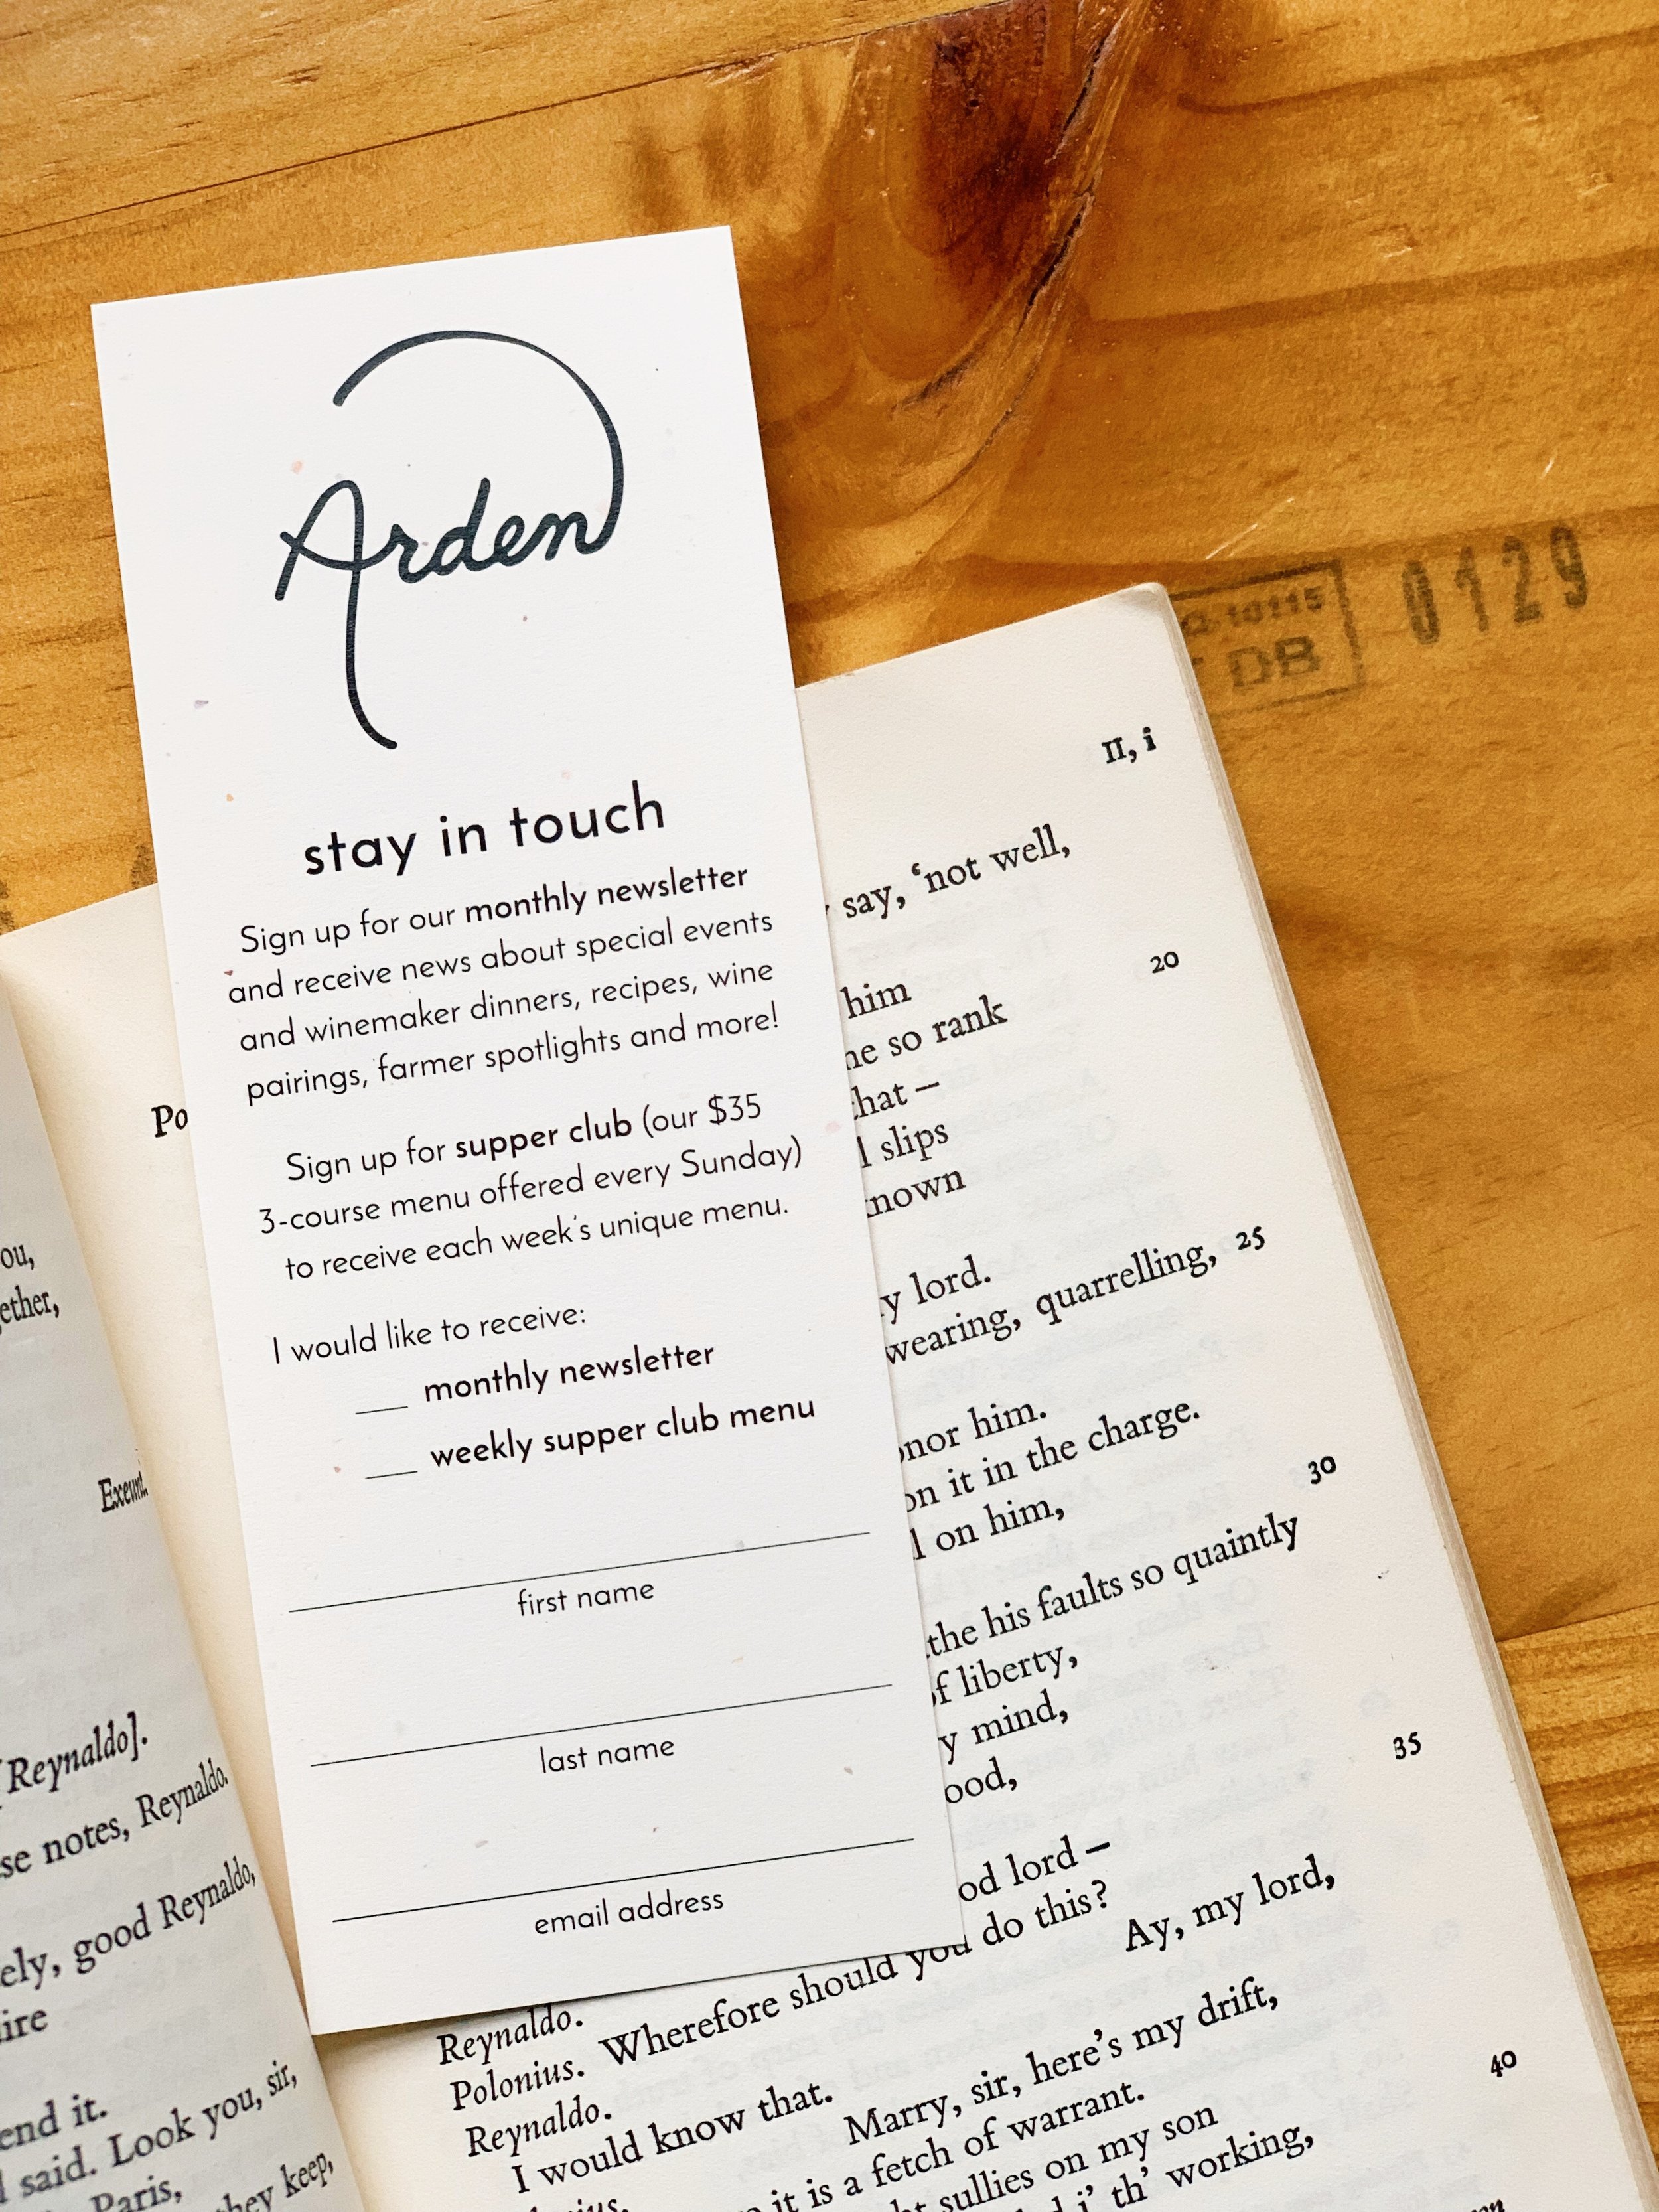 Arden
stay in touch
Sign up for our monthly newsletter
and receive news about special events
and winemaker dinners, recipes, wine
pairings, farmer spotlights and more!
Sign up for supper club (our $35
3-course menu offered every Sunday)
to receive each week's unique menu.
I would like to receive:
___ monthly newsletter
___ weekly supper club menu
first name
last name
email address
10115
DB
0129
II, i
say, ‘not well,
20
him
so rank
that –
slips
lord.
quarrelling, 25
him.
it in the charge.
on him,
30
his faults so quaintly
liberty,
mind,
35
lord –
Reynaldo.
Polonius. Wherefore should you do this?
Reynaldo. Ay, my lord,
I would know that.
Marry, sir, here's my drift,
it is a fetch of warrant.
40
sullies on my son
i' th' working,
Exeunt.
Reynaldo].
notes, Reynaldo.
good Reynaldo,
it.
said. Look you, sir,
Paris,
keep,